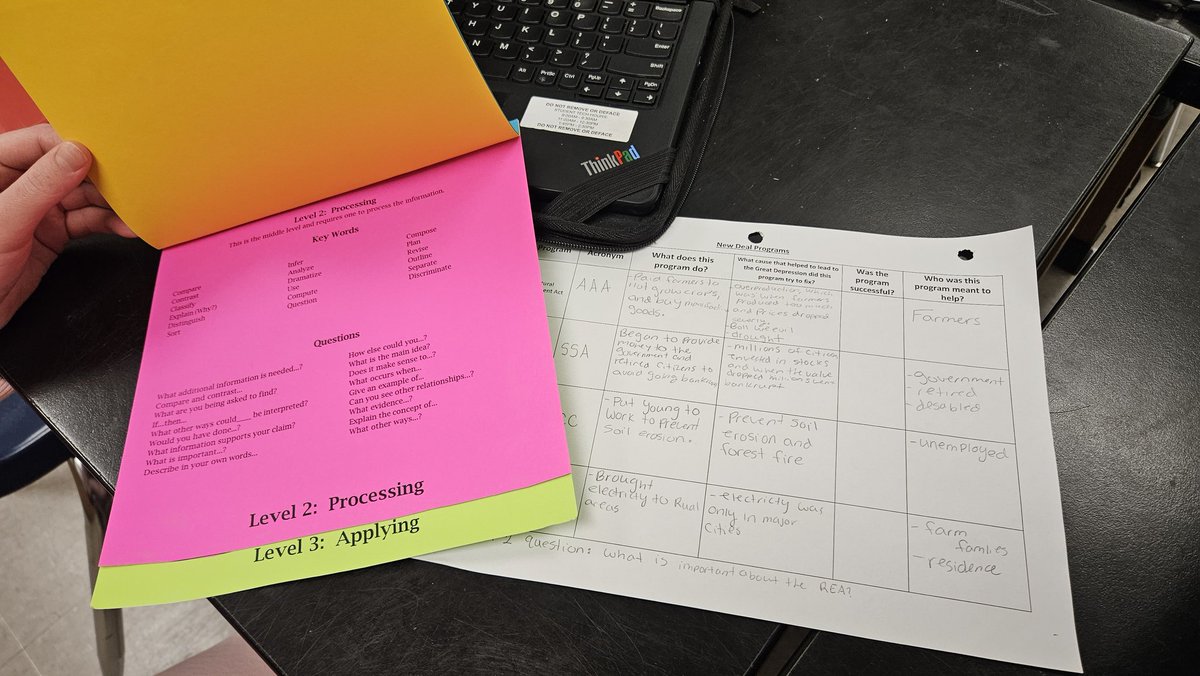 Backspace
Enter
Shift
Alt
PrtSc
Ctrl
PgUp
PgDn
DO NOT REMOVE OR DEFACE
STUDENT TECH HOURS:
DO NOT REMOVE OR DEFACE
ThinkPad
Level 2: Processing
This is the middle level and requires one to process the information.
Key Words
Compare
Contrast
Classify
Explain (Why?)
Distinguish
Sort
Infer
Analyze
Dramatize
Use
Compute
Question
Compose
Plan
Revise
Outline
Separate
Discriminate
Questions
What additional information is needed...?
Compare and contrast...
What are you being asked to find?
If...then...
What other ways could____ be interpreted?
Would you have done...?
What information supports your claim?
What is important...?
Describe in your own words...
How else could you...?
What is the main idea?
Does it make sense to...?
What occurs when...
Give an example of...
Can you see other relationships...?
What evidence...?
Explain the concept of...
What other ways...?
Level 2: Processing
Level 3: Applying
New Deal Programs
Acronym
What does this
program do?
What cause that helped to lead to
the Great Depression did this
program try to fix?
Was the
program
successful?
Who was this
program meant to
help?
Act
AAA
Paid farmers to
not grow crops,
and buy
goods.
when farmers
produced too much
and Prices dropped
- Boll weevil
- drought
Farmers
SSA
Began to Provide
money to the
government and
retired citizens to
avoid going
- millions of
in stocks
and when the value
dropped millions went
bankrupt
- government
retired
- disabled
CC
- Put young to
work to Prevent
Soil erosion.
- Prevent Soil
erosion and
forest fire
- unemployed
- Brought
electricity to Rual
areas
- electricty was
only in major
Cities
- farm
famlies
- residence
2 question: what is important about the REA?